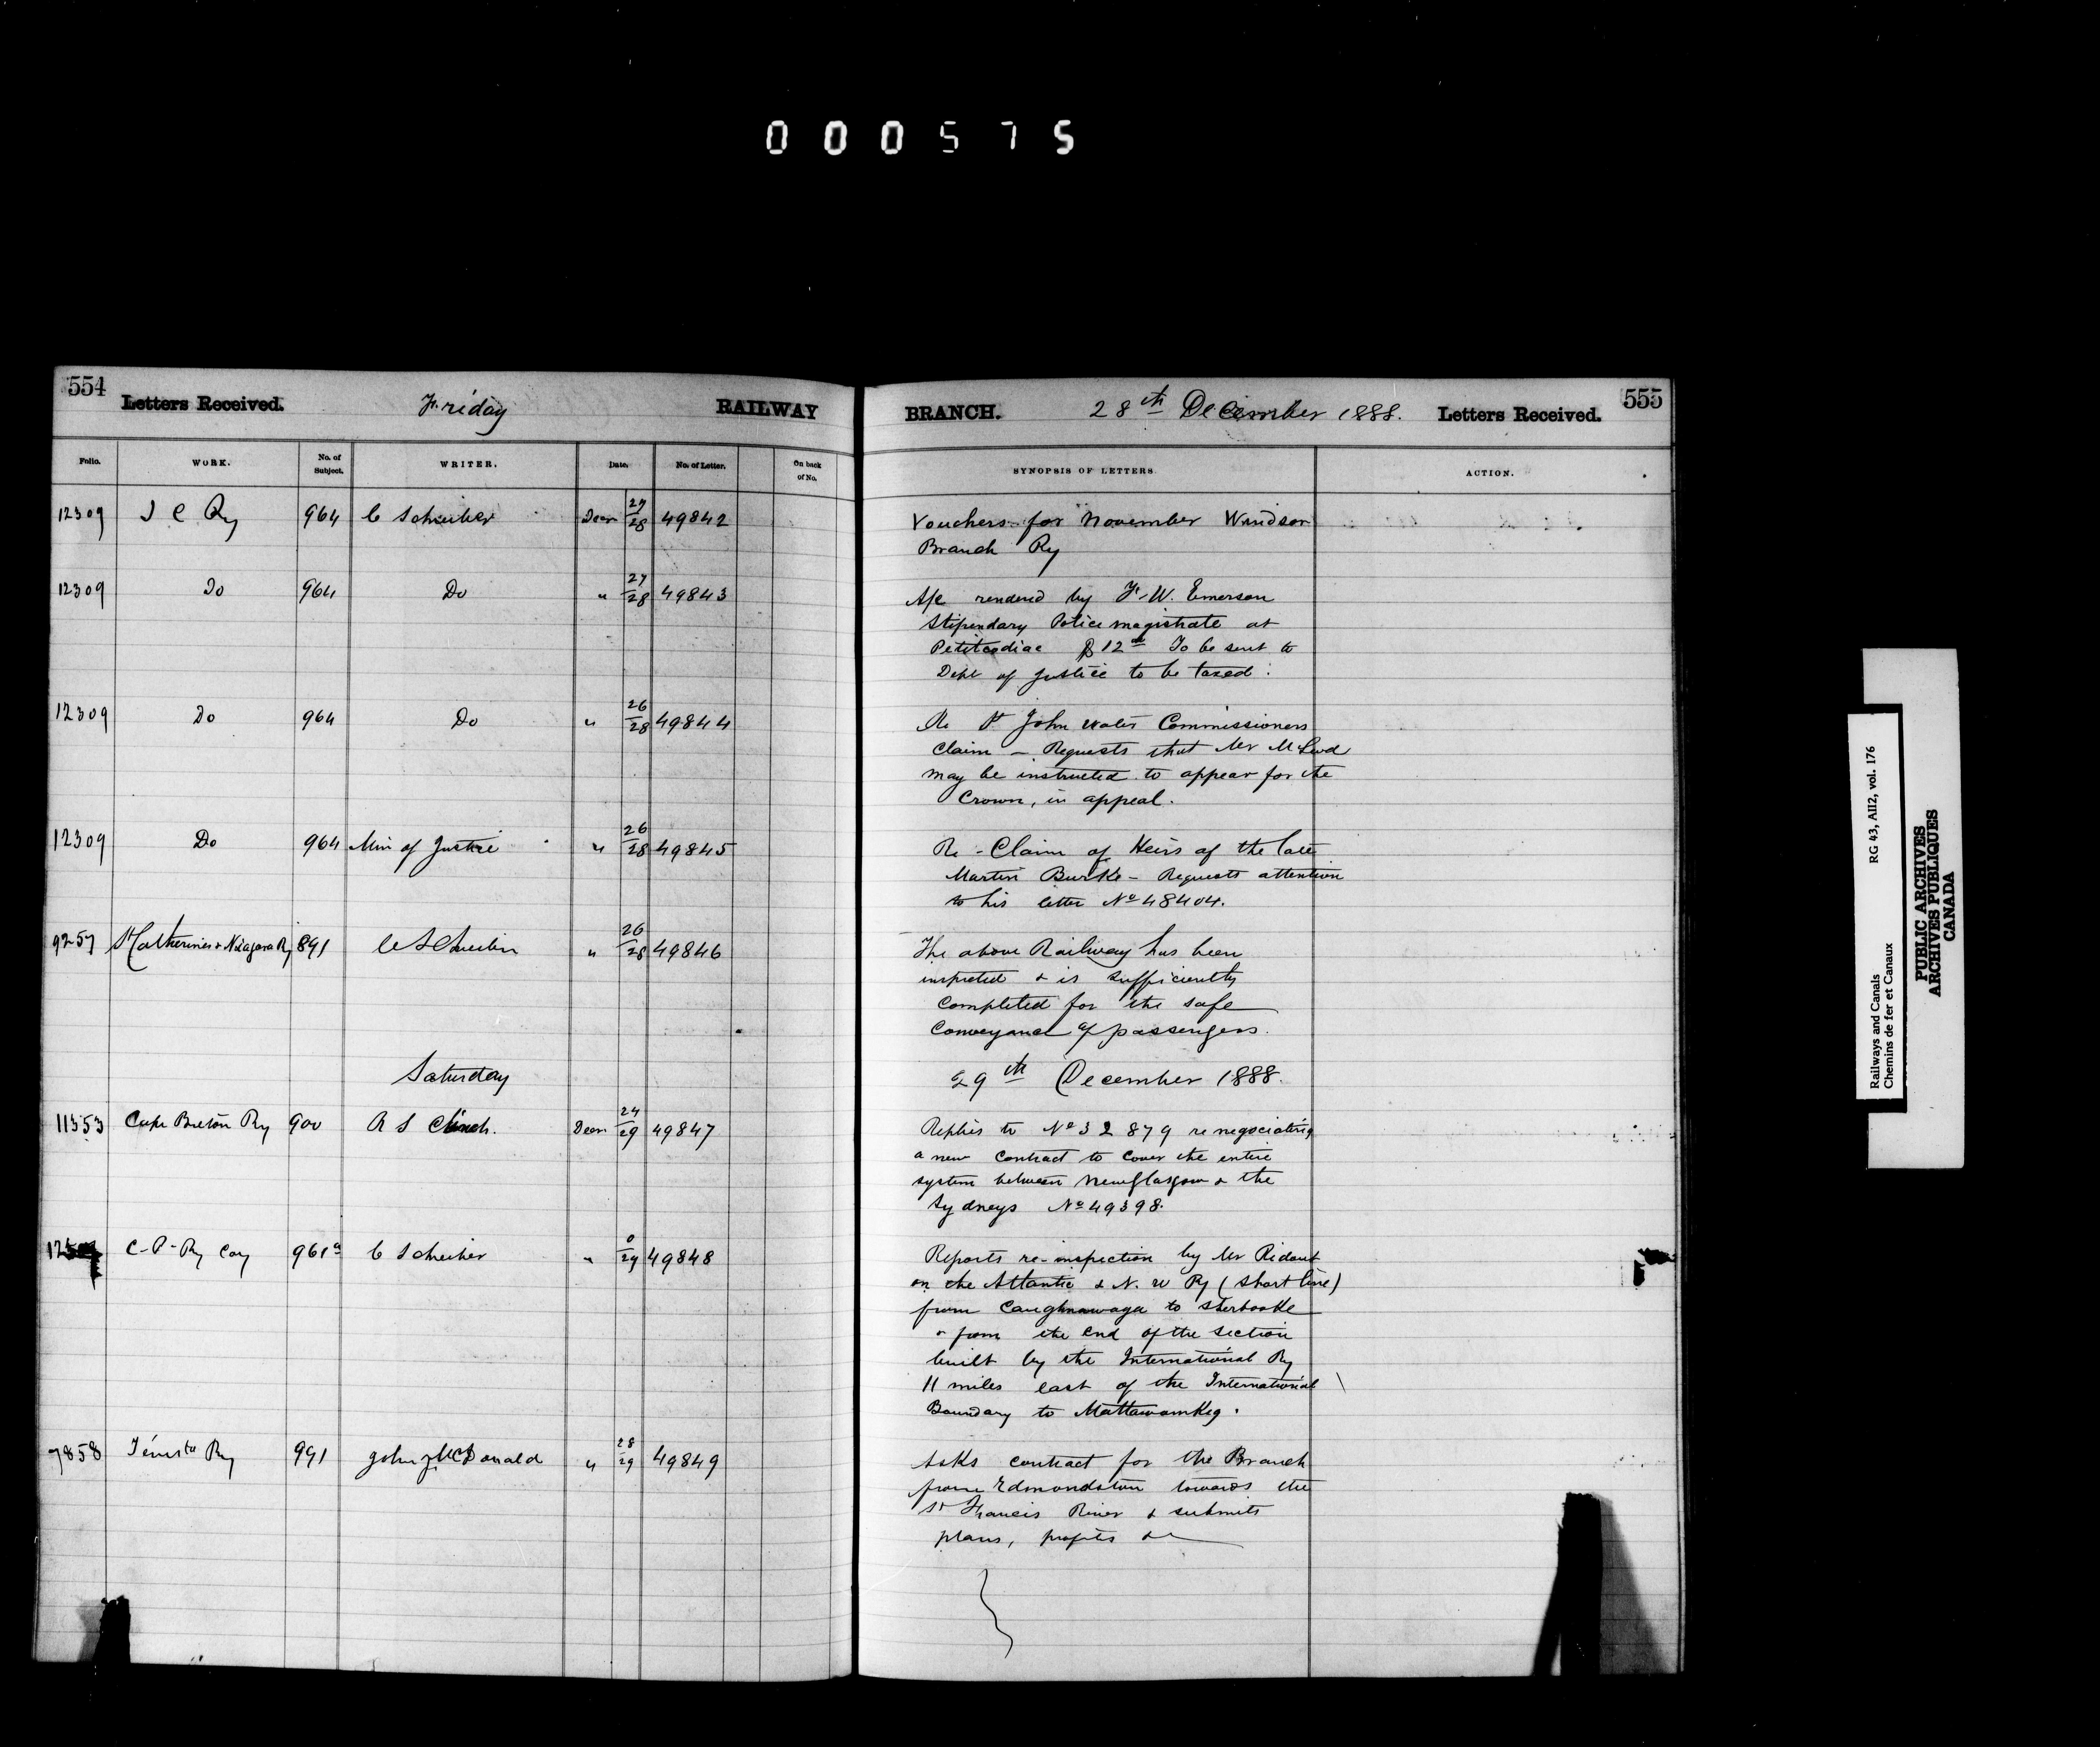 000575
554
Letters Received.
Friday
RAILWAY
BRANCH.
28th December 1888.
Letters Received.
555
Folio.
WORK.
No. of Subject.
WRITER.
Date.
No. of Letter.
On back of No.
SYNOPSIS OF LETTERS.
ACTION.
12309 I C Ry 964 C Schreiber Decr 27/28 49842
Vouchers for November Windsor
Branch Ry
12309 Do 964 Do " 27/28 49843
A/c rendered by F. W. Emerson
Stipendary Police magistrate at
Petitcodiac $12 To be sent to
Dept of Justice to be taxed.
12309 Do 964 Do " 26/28 49844
Re St John Water Commissioners
Claim — Requests that Mr McLeod
may be instructed to appear for the
Crown, in appeal.
12309 Do 964 Min of Justice " 26/28 49845
Re - Claim of Heirs of the late
Martin Burke - Requests attention
to his letter No 48404.
9257 St Catherines & Niagara Ry 891 " 26/28 49846
The above Railway has been
inspected & is sufficiently
completed for the safe
Conveyance of passengers.
Saturday
29th December 1888.
11353 Cape Breton Ry 900 R S Clinch. Decr 24/29 49847
Replies to No 32879 re negociating
a new contract to cover the entire
system between New Glasgow & the
Sydneys No 49398.
C. P. Ry Coy 961a C Schreiber " 0/29 49848
Reports re-inspection by Mr Ridout
on the Atlantic & N. W Ry (Short line)
from Caughnawaga to Sherbooke
& from the end of the section
built by the International Ry
11 miles east of the International
Boundary to Mattawamkeg.
7858 Témista Ry 991 John J McDonald " 28/29 49849
Asks contract for the Branch
from Edmondston towards the
St Francis River & submits
plans, profiles &c
Railways and Canals
Chemins de fer et Canaux
RG 43, AII2, vol. 176
PUBLIC ARCHIVES
ARCHIVES PUBLIQUES
CANADA